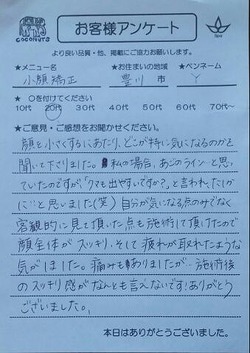 COCONUTS
お客様アンケート
より良い品質・他、掲載にご協力お願いします。
★メニュー名 ★お住まいの地域 ★ペンネーム
小顔矯正 豊川市 Y
★ ○を付けてください
10代 20代 30代 40代 50代 60代 70代〜
★ご意見・ご感想をお聞かせください。
顔を小さくするにあたり、どこが特に気になるのかを
聞いて下さりました。私の場合、あごのラインと思っ
ていたのですが、「クマも出やすいですか?」と言われ、
と思いました(笑) 自分が気になる点のみでなく
客観的に見て頂いた点も施術して頂けたので
顔全体がスッキリ、そして疲れが取れたような
気がしました。痛みもありましたが、施術後
のスッキリ感がなんとも言えないです!ありがとう
ございました。
本日はありがとうございました。